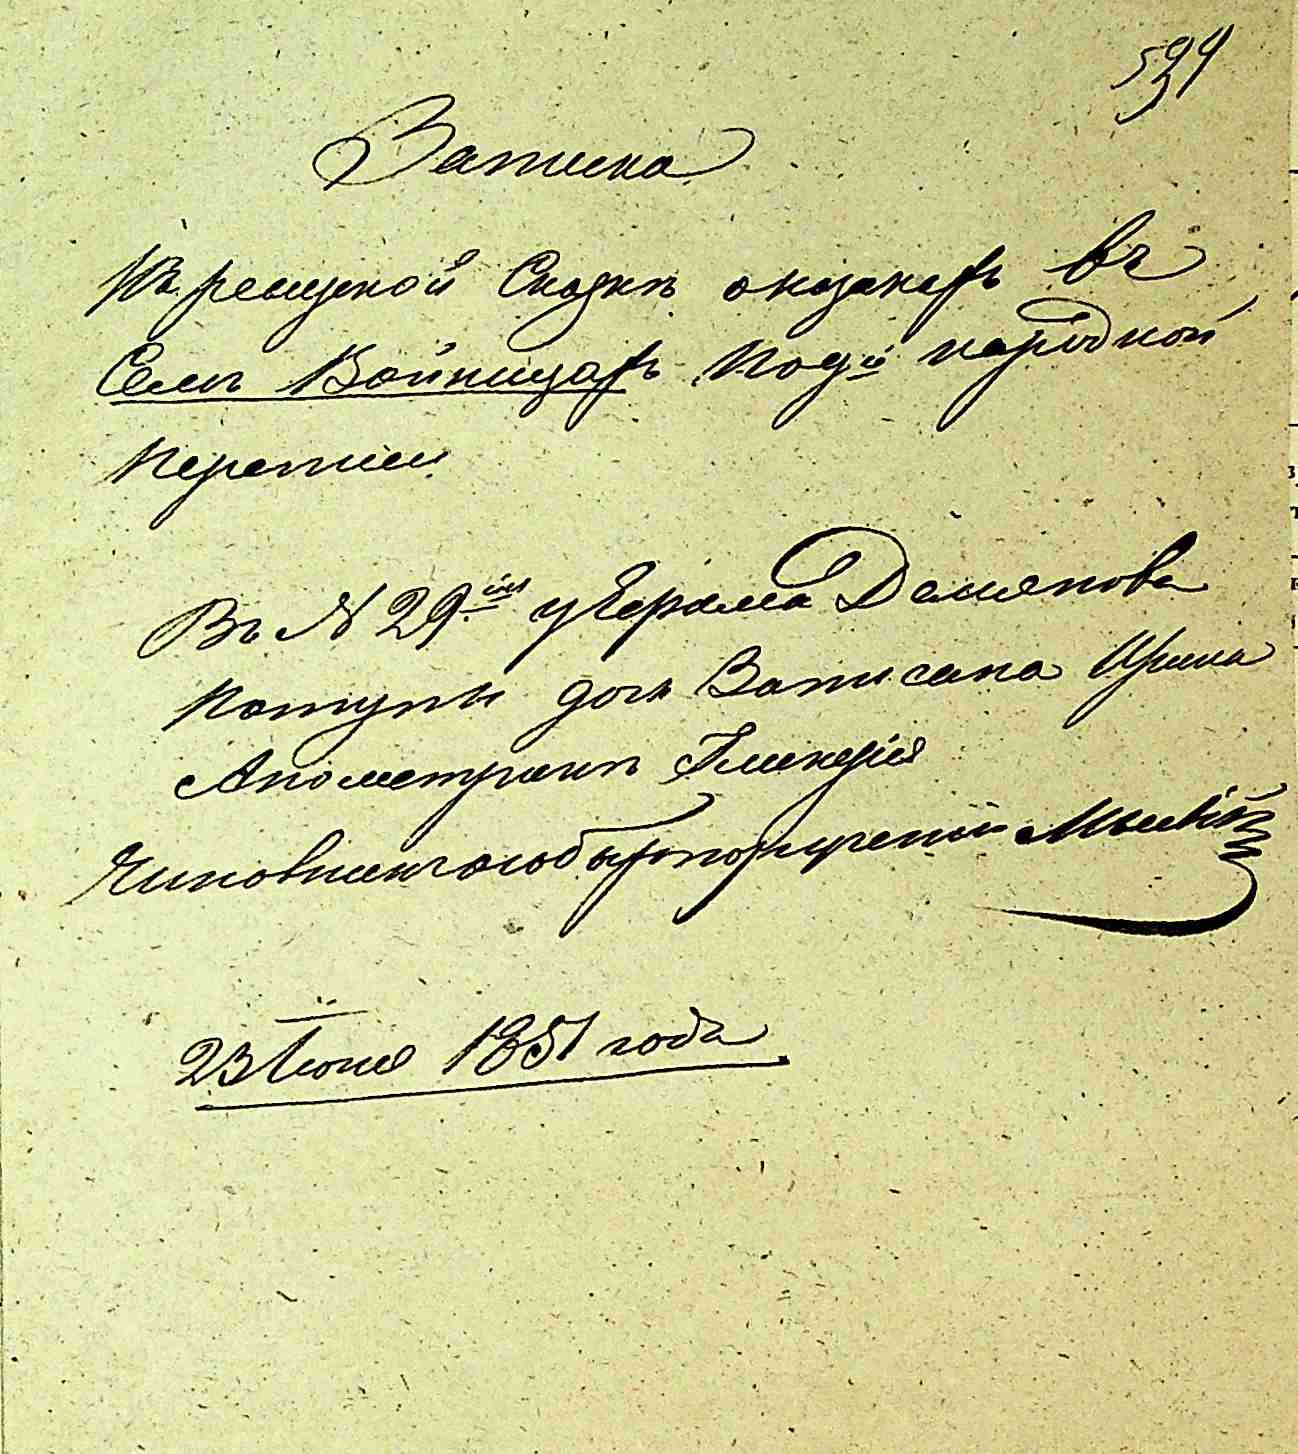 534
Записка
Къ ревизской Сказкѣ о козакахъ въ
Селѣ Войницахъ по 9й народной
переписи
Въ N 29мъ у Герасима Демянова
Потупы дочь Записана Ирина
А по метрикѣ Гликерія
Чиновникъ особыхъ порученій
23 Іюня 1851 года